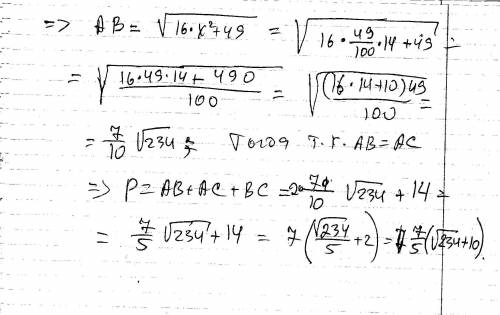 => AB = √(16·x²+49) = √(16·49/100·14+49) =
= √((16·49·14+490)/100) = √((16·14+10)49/100) =
= 7/10 √234 ; Тогда т.к. AB=AC
=> P = AB+AC+BC = 2·7/10 √234 + 14 =
= 7/5 √234 + 14 = 7(√234/5 + 2) = 7/5(√234+10).